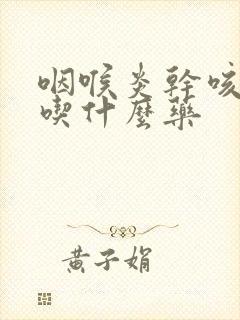 咽喉炎幹咳
喫什麼藥
黃子娟